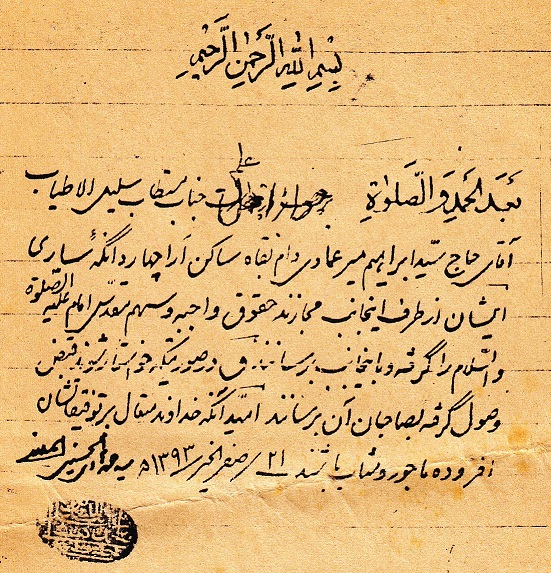 بِسْمِ اللهِ الرَّحْمٰنِ الرَّحِيْمِ
بَعْدَ الحَمْدِ وَالصَّلٰوةِ جناب مستطاب سلیل الاطیاب
آقای حاج سیّد ابراهیم میرعمادی دام بقاه ساکن اراچهاردانگهٔ ساری
ایشان از طرف اینجانب مجازند حقوق واجبه و سهم مقدّس امام علیه الصلوة
والسّلام را گرفته و باینجانب برسانند و در صورتیکه خواستار شوند قبض
وصول گرفته بصاحبان آن برسانند امید آنکه خداوند متعال بر توفیقاتشان
افزوده ماجور و مثاب باشند ۲۱/صفرالخیر/۱۳۹۳ھ